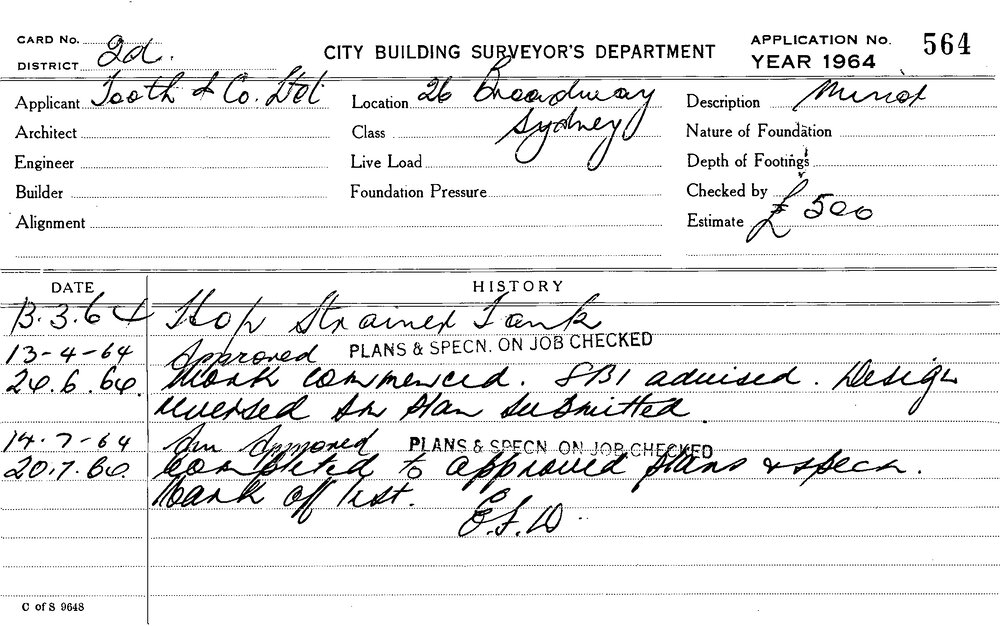 CARD No. 2d.
DISTRICT
CITY BUILDING SURVEYOR'S DEPARTMENT
APPLICATION No. 564
YEAR 1964
Applicant Tooth & Co. Ltd
Location 26 Broadway
Sydney
Description Minor
Architect
Class
Nature of Foundation
Engineer
Live Load
Depth of Footings
Builder
Foundation Pressure
Checked by
Alignment
Estimate £500
DATE HISTORY
13.3.64 Hop Strainer Tank
13-4-64 Approved PLANS & SPECN. ON JOB CHECKED
24.6.64. Work commenced. SBI advised. Design
reversed Am Plan Submitted
14-7-64 Am Approved PLANS & SPECN. ON JOB CHECKED
20.7.64. Completed to approved plans & specn.
Mark off list.
E.F.D.
C of S 9648